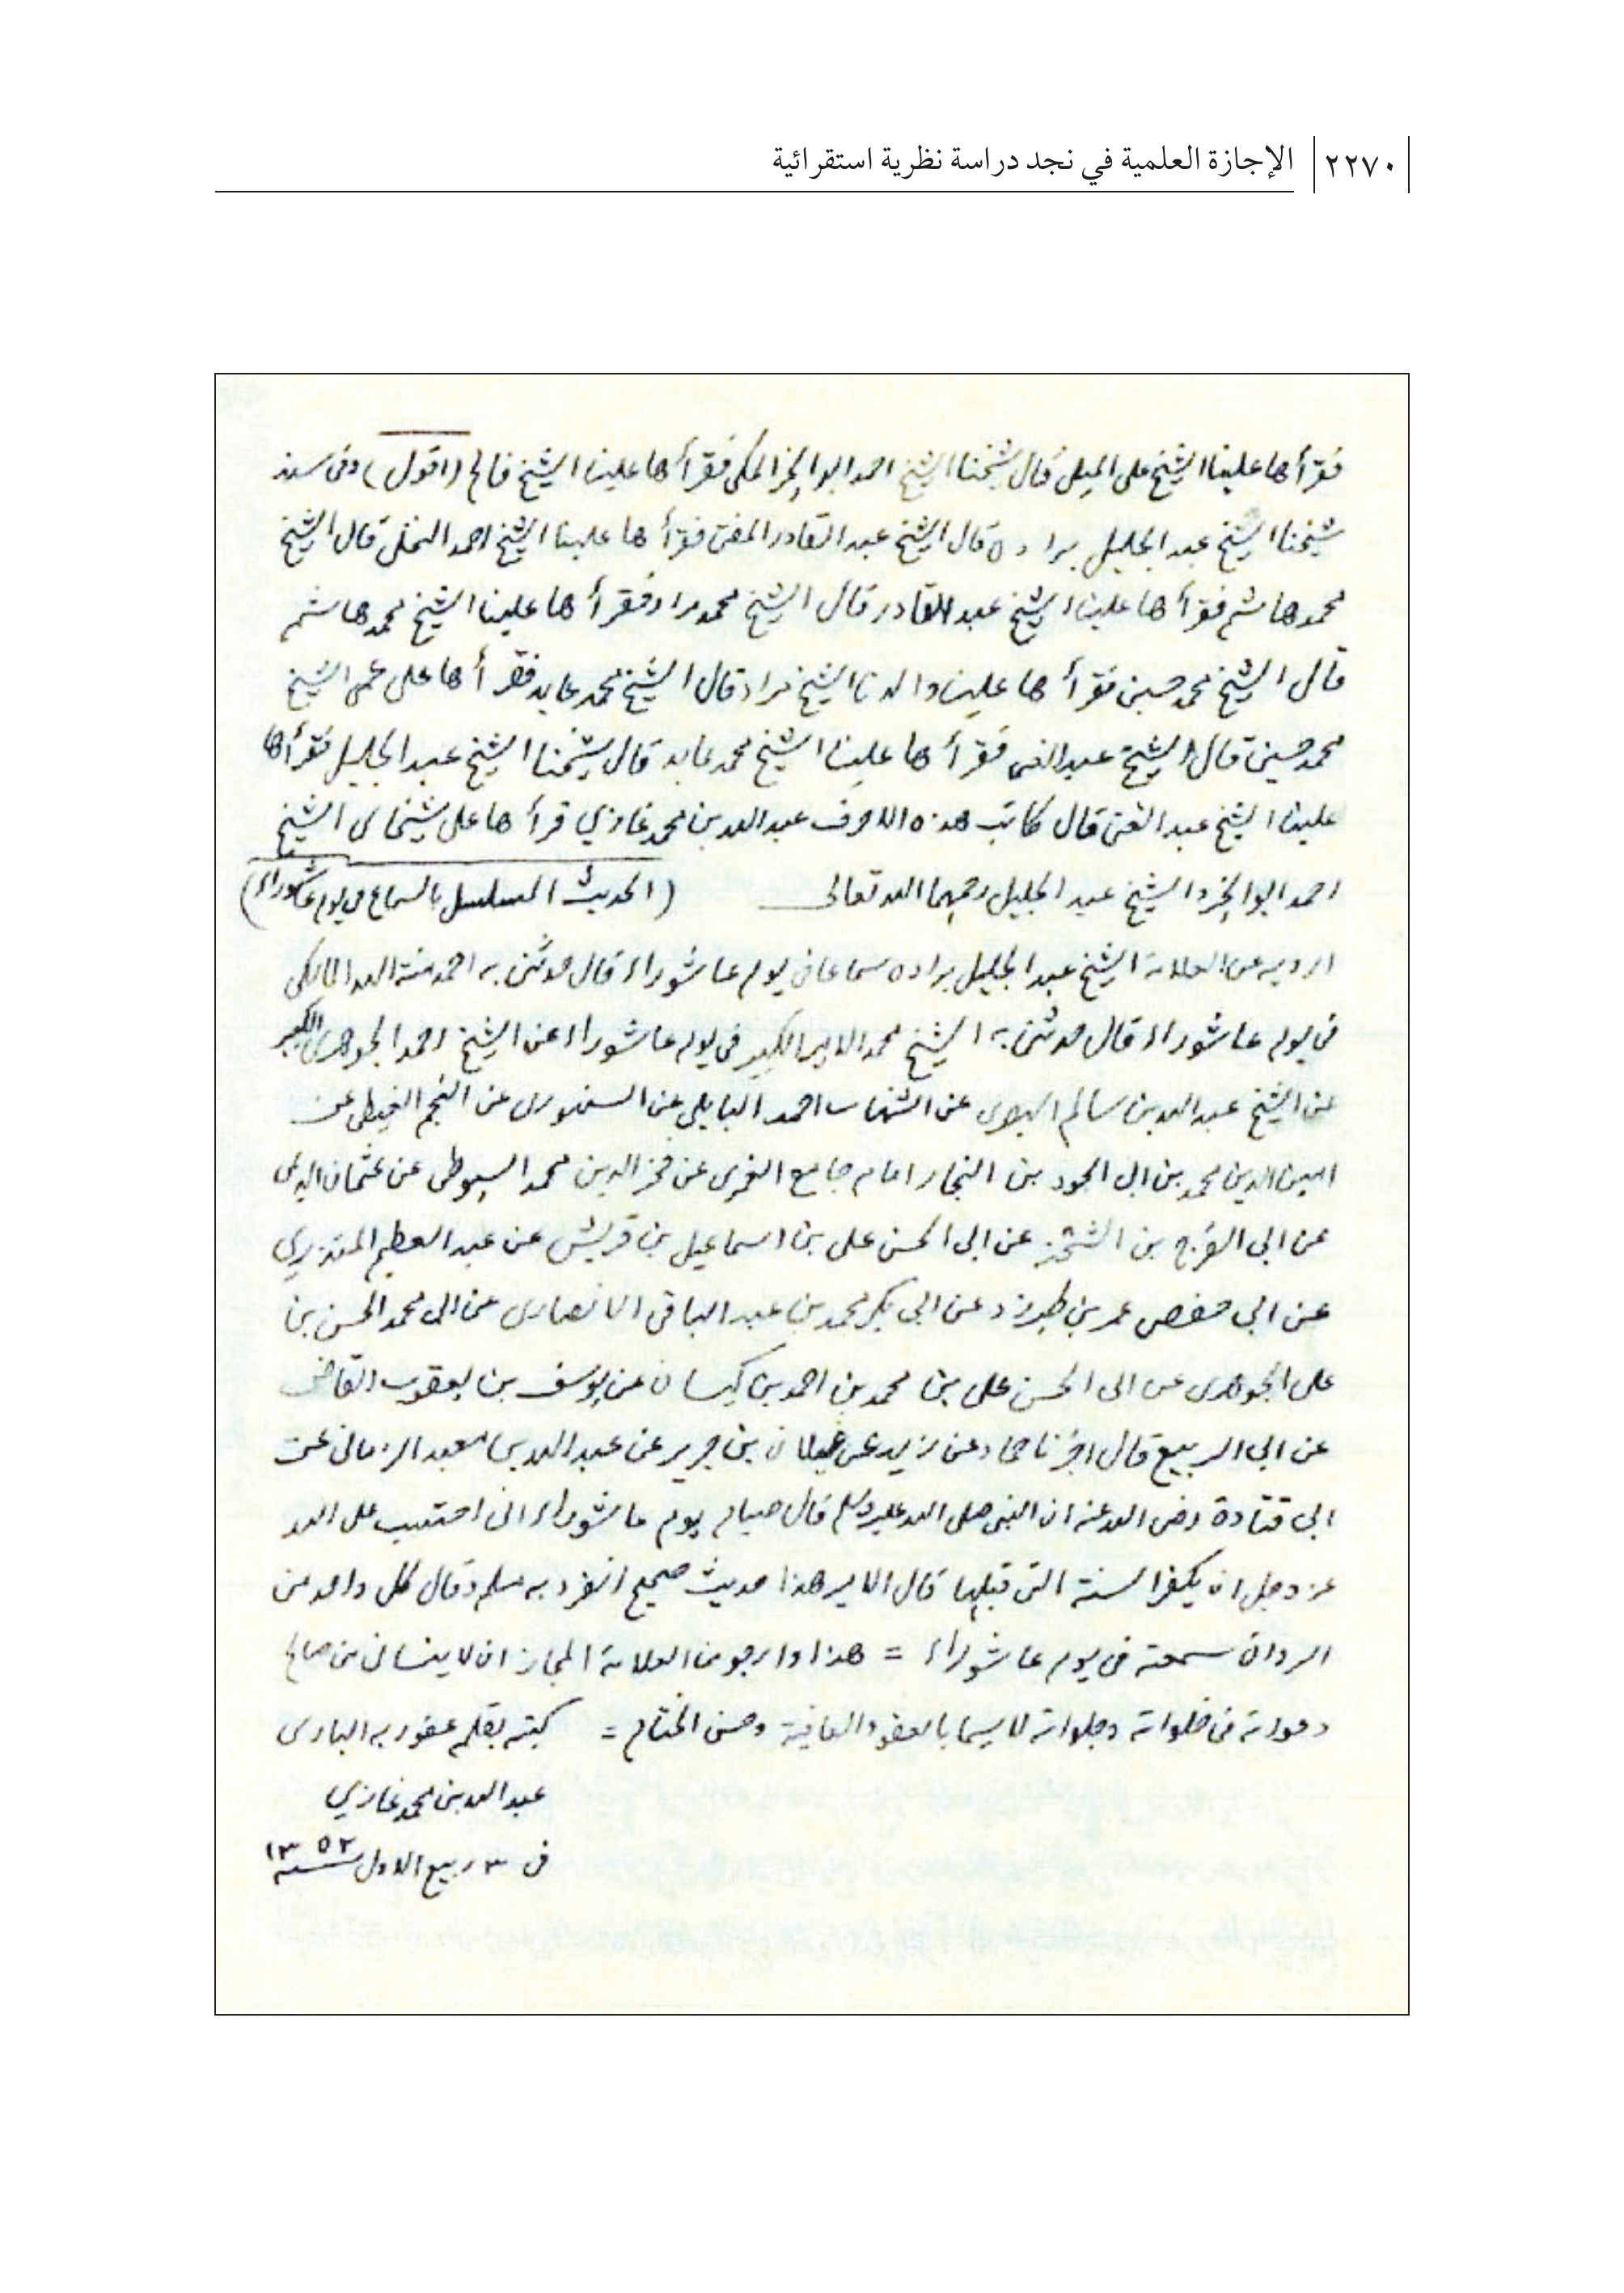 ٢٢٧٠ الإجازة العلمية في نجد دراسة نظرية استقرائية
فقرأها علينا الشيخ على الميلى قال شيخنا الشيخ احمد ابو الخير المكى فقرأها علينا الشيخ فالح (اقول) وفى سند
شيخنا الشيخ عبد الجليل براده قال الشيخ عبد القادر المفتى فقرأها علينا الشيخ احمد النخلى قال الشيخ
محمد هاشم فقرأها علينا الشيخ عبد القادر قال الشيخ محمد مراد فقرأها علينا الشيخ محمد هاشم
قال الشيخ محمد حسين فقرأها علينا والدنا الشيخ مراد قال الشيخ محمد عابد فقرأها على عمى الشيخ
محمد حسين قال الشيخ عبد الغنى فقرأها علينا الشيخ محمد عابد قال شيخنا الشيخ عبد الجليل فقرأها
علينا الشيخ عبد الغنى قال كاتب هذه الاحرف عبد الله بن محمد غازي قرأها على شيخاى الشيخ
احمد ابو الخير والشيخ عبد الجليل رحمهما الله تعالى (الحديث المسلسل بالسماع في يوم عاشوراء)
ارويه عن العلامة الشيخ عبد الجليل براده سماعا فى يوم عاشوراء قال حدثنى به احمد منة الله المالكى
فى يوم عاشوراء قال حدثنى به الشيخ محمد الامير الكبير في يوم عاشوراء عن الشيخ احمد الجوهرى الكبير
عن الشيخ عبد الله بن سالم البصرى عن الشهاب احمد البابلى عن السنهورى عن النجم الغيطى عن
امين الدين محمد بن ابى الجود بن النجار امام جامع الغمرى عن فخر الدين محمد السيوطى عن عثمان الديمى
عن ابى الفرج بن الشحنة عن ابى الحسن على بن اسماعيل بن قريش عن عبد العظيم المنذري
عن ابى حفص عمر بن طبرزد عن ابى بكر محمد بن عبد الباقى الانصارى عن ابى محمد الحسن بن
على الجوهرى عن ابى الحسن على بن محمد بن احمد بن كيسان عن يوسف بن يعقوب القاضى
عن ابى الربيع قال اخبرنا حماد عن زيد عن غيلان بن جرير عن عبد الله بن معبد الزمانى عن
ابى قتادة رضى الله عنه ان النبى صلى الله عليه وسلم قال صيام يوم عاشوراء انى احتسب على الله
عز وجل ان يكفر السنة التى قبلها قال الامير هذا حديث صحيح انفرد به مسلم وقال كل واحد من
الرواة سمعته فى يوم عاشوراء = هذا وارجو من العلامة المجاز ان لا ينسانى من صالح
دعواته فى خلواته وجلواته لا سيما بالعفو والعافية وحسن الختام = كتبه بقلمه عفو ربه البارى
عبد الله بن محمد غازي
فى ٣ ربيع الاول سنة ١٣٥٢